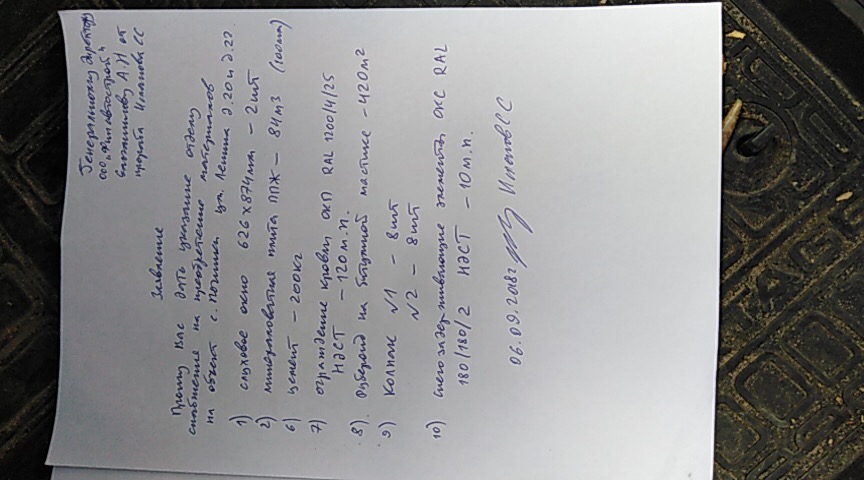 Генеральному директору
ООО "Жилавтострой"
А.Н от
прораба СС
Заявление
Прошу Вас дать указание отделу
снабжения на приобретение материалов
на объект с. Починки ул. Ленина д.20 и д.22.
1) слуховое окно 626х874мм – 2шт
2) минераловатная плита ППЖ – 84м3 (100мм)
6) цемент – 200кг
7) ограждение кровли ОКП RAL 1200/4/25
НЭСТ – 120 м.п.
8) Рубероид на битумной мастике – 420м2
9) Колпак №1 – 8шт
№2 – 8шт
10) снегозадерживающие элементы ОКС RAL
180/180/2 НЭСТ – 10 м.п.
06.09.2018г СС